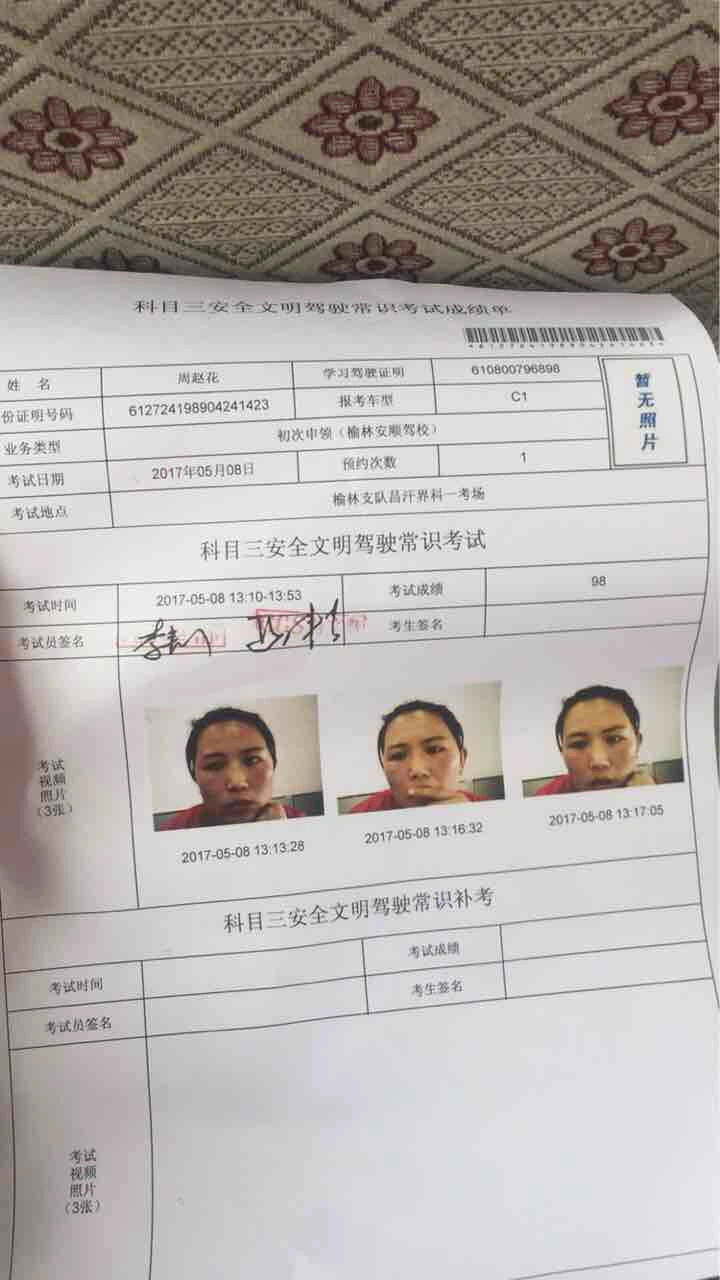 科目三安全文明驾驶常识考试成绩单
姓 名 周赵花 学习驾驶证明 610800796898
份证明号码 612724198904241423 报考车型 C1
暂无照片
业务类型 初次申领（榆林安顺驾校）
考试日期 2017年05月08日 预约次数 1
考试地点 榆林支队昌汗界科一考场
科目三安全文明驾驶常识考试
考试时间 2017-05-08 13:10-13:53 考试成绩 98
考试员签名 考生签名
考试
视频
照片
（3张）
2017-05-08 13:13:28 2017-05-08 13:16:32 2017-05-08 13:17:05
科目三安全文明驾驶常识补考
考试时间 考试成绩
考试员签名 考生签名
考试
视频
照片
（3张）